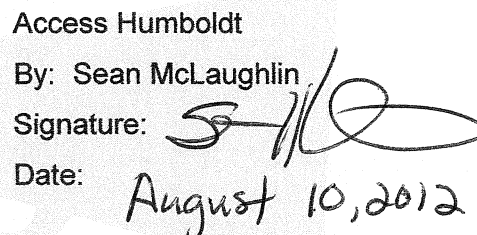 Access Humboldt
By: Sean McLaughlin
Signature:
Date: August 10, 2012